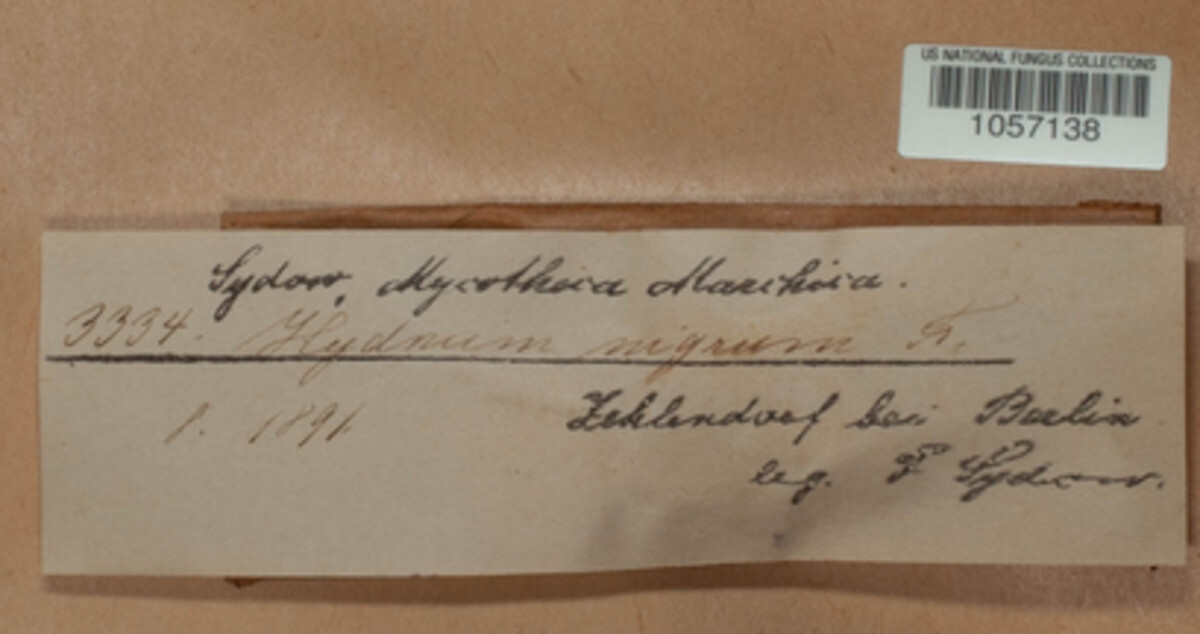 US NATIONAL FUNGUS COLLECTIONS
1057138
Sydow, Mycotheca Marchica.
3334. Hydnum nigrum Fr.
8. 1891
Zehlendorf bei Berlin
leg. P Sydow.